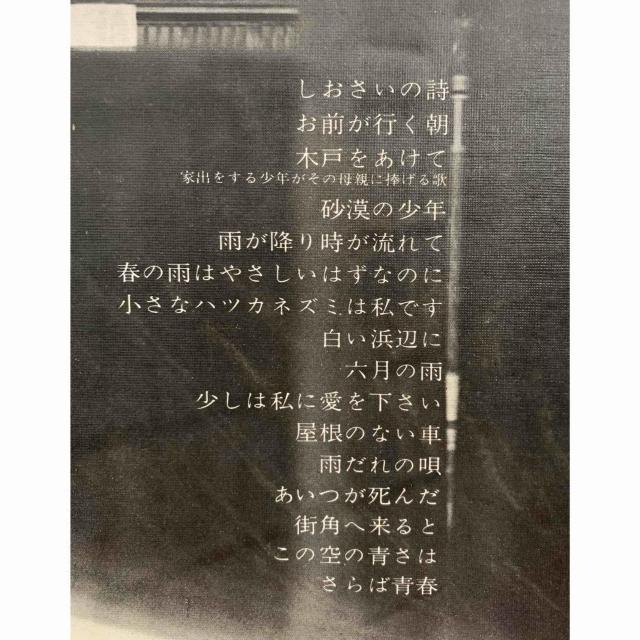 しおさいの詩
お前が行く朝
木戸をあけて
家出をする少年がその母親に捧げる歌
砂漠の少年
雨が降り時が流れて
春の雨はやさしいはずなのに
小さなハツカネズミは私です
白い浜辺に
六月の雨
少しは私に愛を下さい
屋根のない車
雨だれの唄
あいつが死んだ
街角へ来ると
この空の青さは
さらば青春